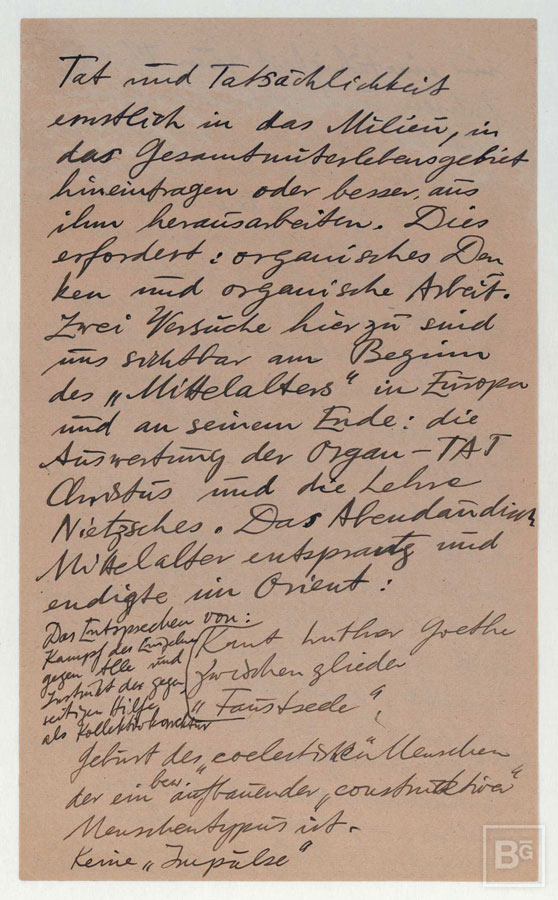 Tat und Tatsächlichkeit
ernstlich in das Milieu, in
das Gesamtmiterlebensgebiet
hineintragen oder besser, aus
ihm herausarbeiten. Dies
erfordert: organisches Den
ken und organische Arbeit.
Zwei Versuche hierzu sind
uns sichtbar am Beginn
des „Mittelalters“ in Europa
und an seinem Ende: die
Auswertung der Organ-TAT
Christus und die Lehre
Nietzsches. Das Abendländisch
Mittelalter entsprang und
endigte im Orient:
Das Entsprechen von:
Kampf des Einzelnen
gegen Alle und
Instinkt der gegen
seitigen Hilfe
als Kollektivkorrektur
Kant Luther Goethe
zwischenglieder
„Faustseele“
Geburt des „coelestischen“ Menschen
der ein bew. aufbauender „constructiver“
Menschentypus ist.
Keine „Impulse“
BG